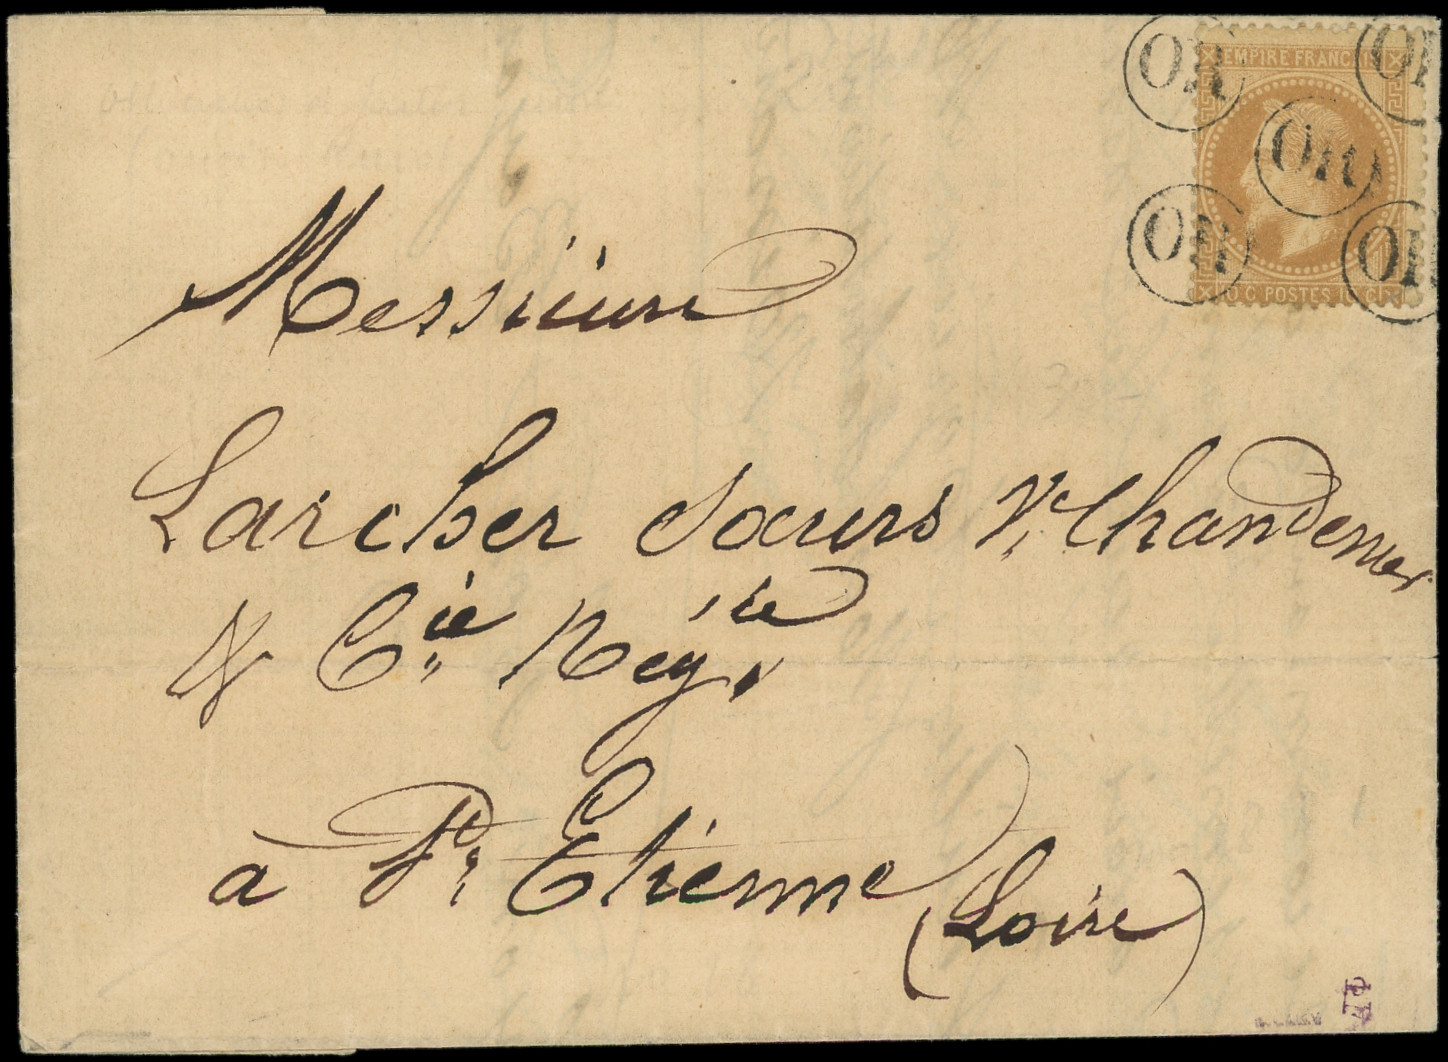 OR OR
EMPIRE FRANÇAIS
OR
OR OR
10 C POSTES 10 C
Messieurs
Larcher Soeurs Vr Chandemer
& Cie Négte
à St Etienne
(Loire)